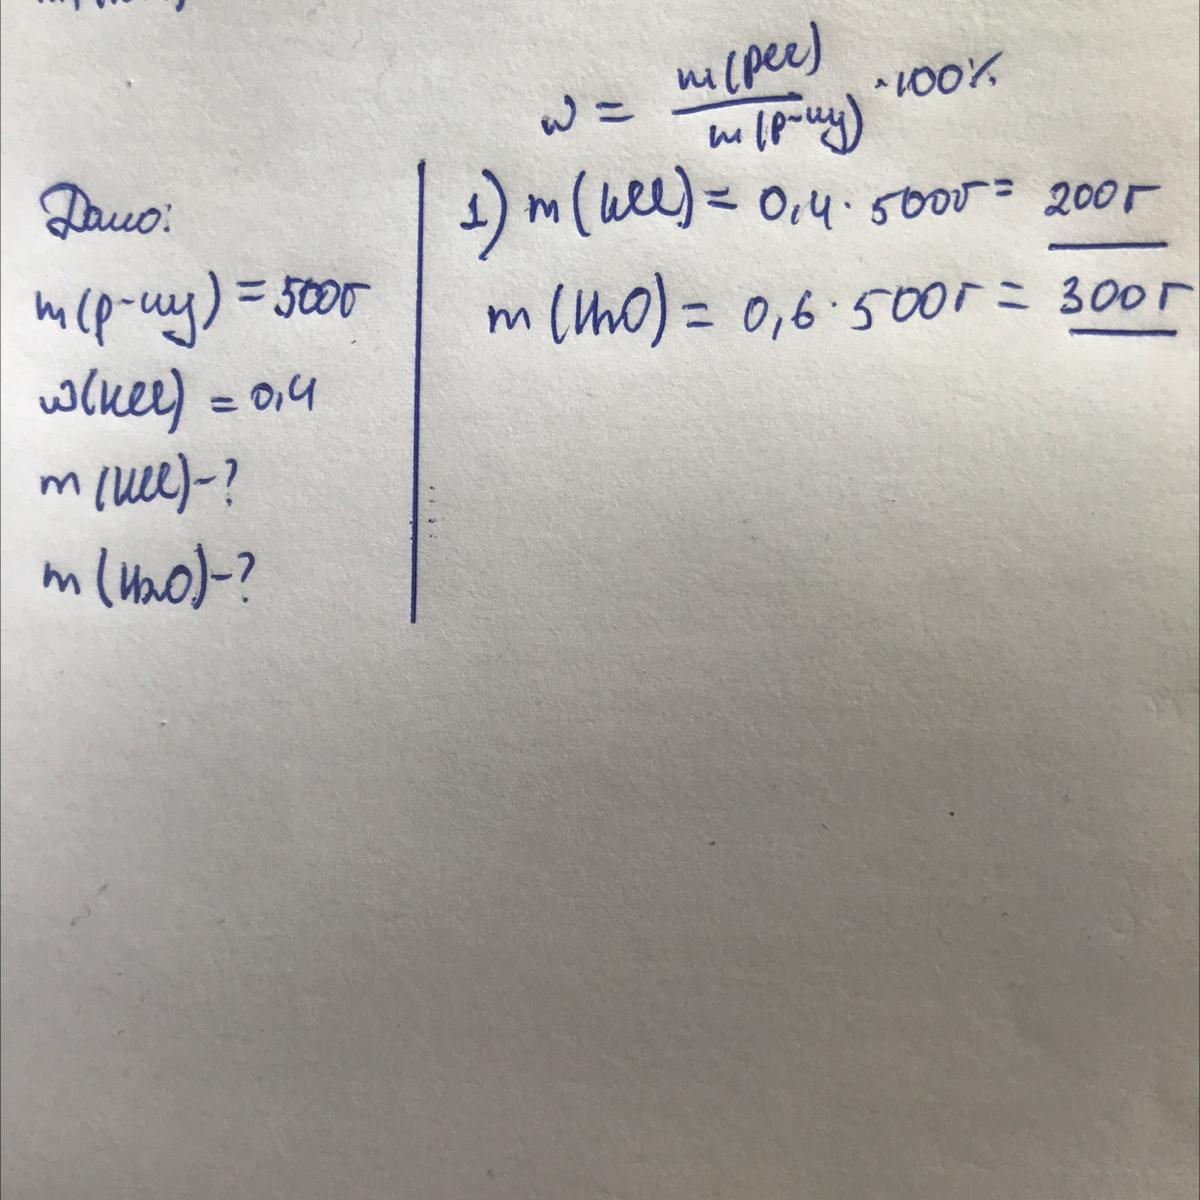 w = m(реч) / m(р-ну) · 100%
Дано:
m(р-ну) = 500г
w(KCl) = 0,4
m(KCl) - ?
m(H2O) - ?
1) m(KCl) = 0,4 · 500г = 200г
m(H2O) = 0,6 · 500г = 300г